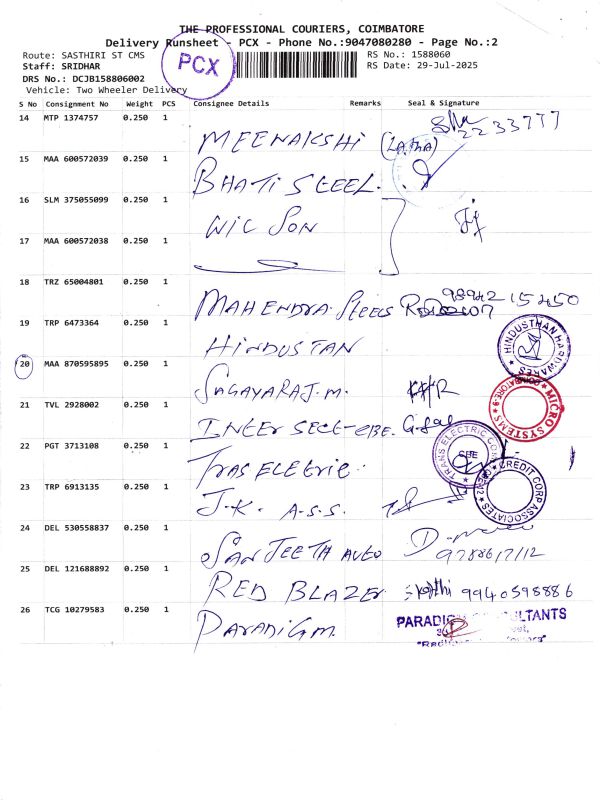 THE PROFESSIONAL COURIERS, COIMBATORE
Delivery Runsheet - PCX - Phone No.:9047080280 - Page No.:2
Route: SASTHIRI ST CMS
Staff: SRIDHAR
DRS No.: DCJB158806002
Vehicle: Two Wheeler Delivery
PCX
RS No.: 1588060
RS Date: 29-Jul-2025
S No Consignment No Weight PCS Consignee Details Remarks Seal & Signature
14 MTP 1374757 0.250 1 MEENAKSHI (Latha) 2233777
15 MAA 600572039 0.250 1 BHATI STEEL.
16 SLM 375055099 0.250 1 WIL SON
17 MAA 600572038 0.250 1
18 TRZ 65004801 0.250 1 MAHENDRA STEELS 9894215450
19 TRP 6473364 0.250 1 HINDUSTAN HINDUSTHAN HARDWARES
20 MAA 870595895 0.250 1 SAGAYARAJ.M. MICRO SYSTEMS
21 TVL 2928002 0.250 1 INTER SECT-
22 PGT 3713108 0.250 1 TRAS ELETRIC TRANS ELECTRIC
23 TRP 6913135 0.250 1 J.K. A.S.S. CREDIT CORP ASSOCIATES
24 DEL 530558837 0.250 1 SANJEETH AUTO
25 DEL 121688892 0.250 1 RED BLAZER 9940598886
26 TCG 10279583 0.250 1 PARADIGM